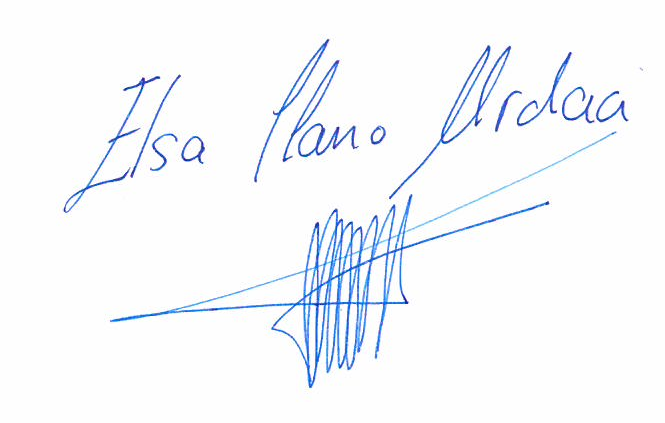 Elsa Llano Urdaa